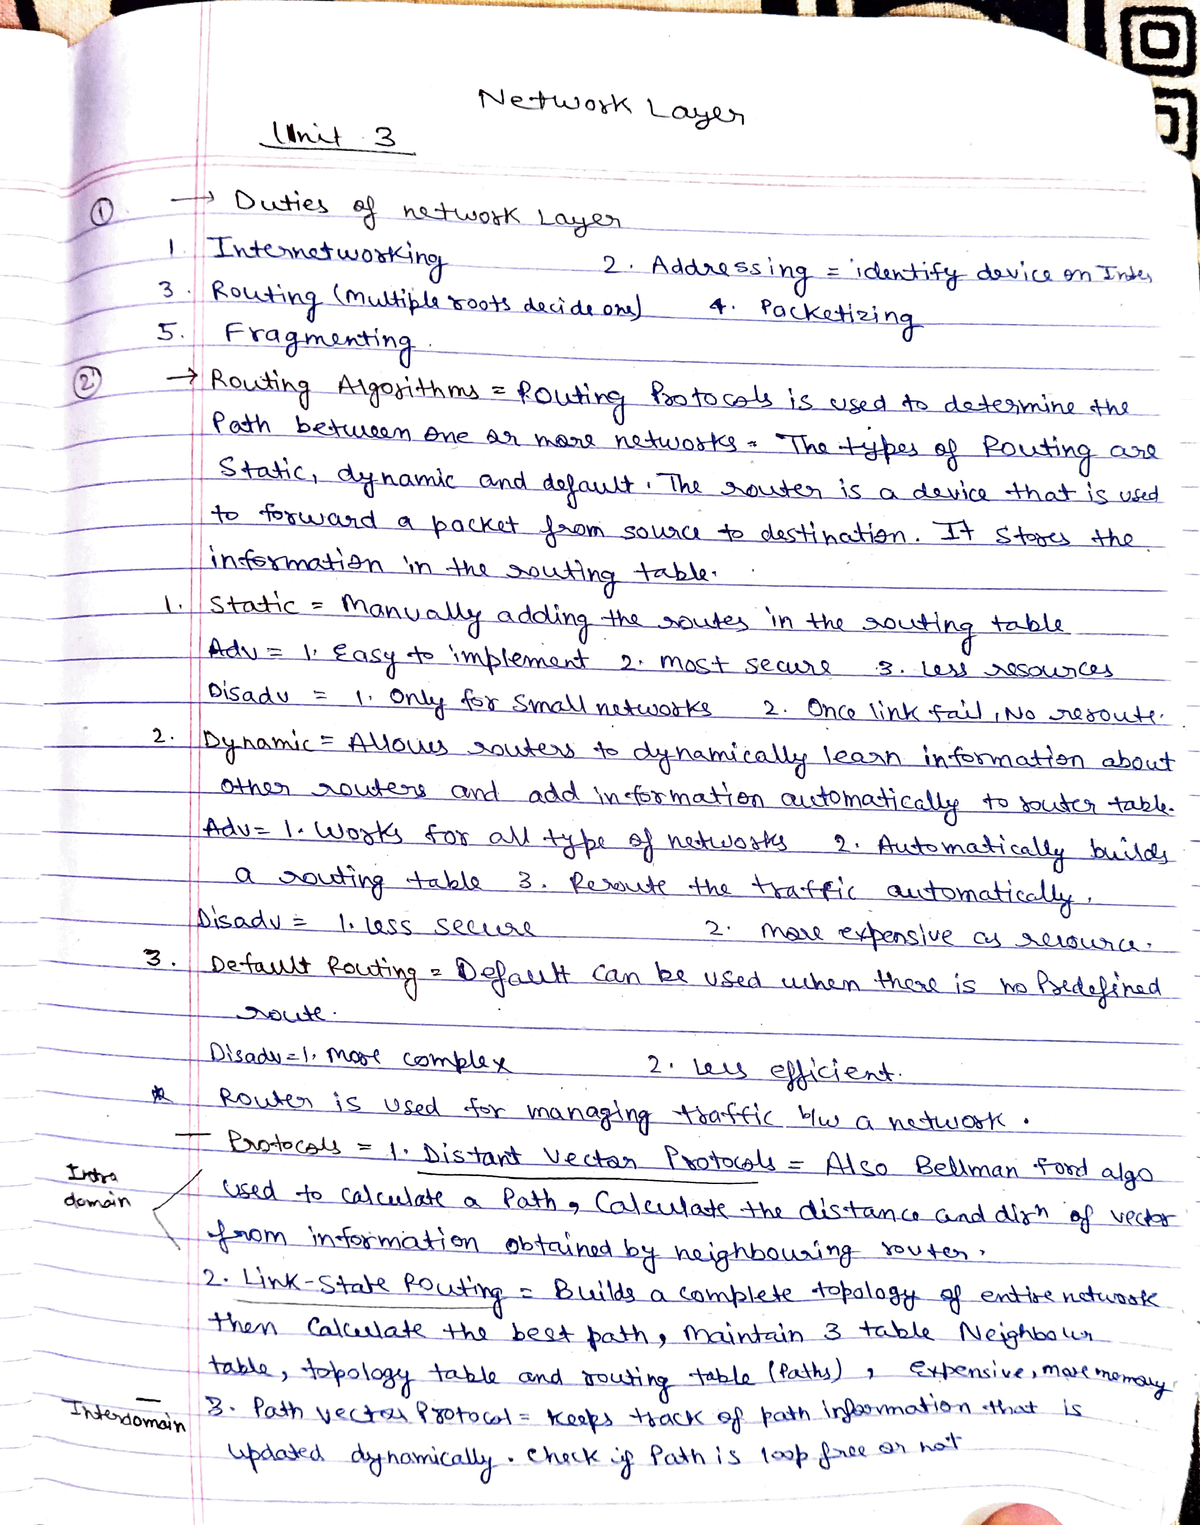 Network Layer
Unit 3
① → Duties of network Layer
1. Internetworking 2. Addressing = identify device on Inter
3. Routing (multiple roots decide one) 4. Packetizing
5. Fragmenting.
② → Routing Algorithms = Routing Protocols is used to determine the
Path between one or more networks = The types of Routing are
Static, dynamic and default. The router is a device that is used
to forward a packet from source to destination. It stores the
information in the routing table.
1. Static = Manually adding the routes in the routing table
Adv = 1. Easy to implement 2. most secure 3. Less resources
Disadv = 1. Only for Small networks 2. Once link fail, No reroute.
2. Dynamic = Allows routers to dynamically learn information about
other routers and add information automatically to router table.
Adv = 1. Works for all type of networks 2. Automatically builds
a routing table 3. Reroute the traffic automatically.
Disadv = 1. less secure 2. more expensive as resource.
3. Default Routing = Default can be used when there is no Predefined
route.
Disadv = 1. more complex 2. Less efficient.
* Router is used for managing traffic b/w a network.
— Protocols = 1. Distant Vector Protocols = Also Bellman Ford algo
Intra
domain
used to calculate a Path, Calculate the distance and dirn of vector
from information obtained by neighbouring router.
2. Link-State Routing = Builds a complete topology of entire network
then Calculate the best path, maintain 3 table Neighbour
table, topology table and routing table (Paths), Expensive, more memory
Interdomain 3. Path vector Protocol = Keeps track of path information that is
updated dynamically. Check if Path is loop free or not